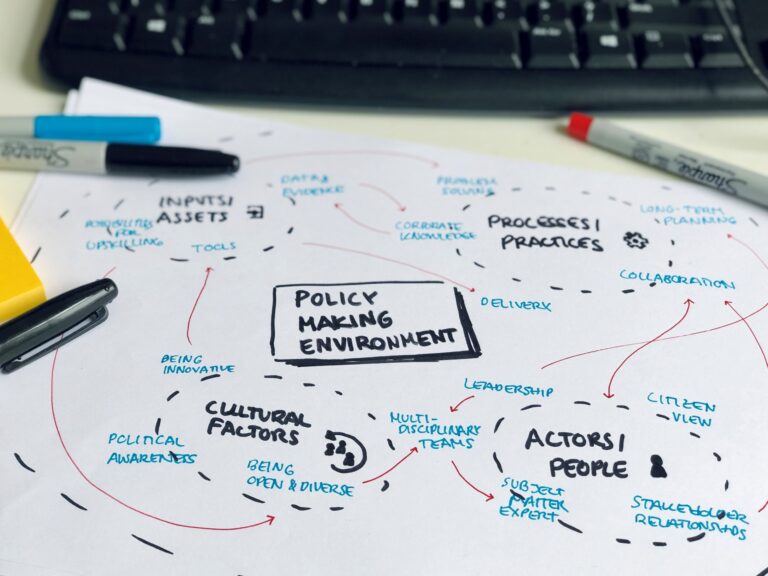 Sharpie
Sharpie
INPUTS/
ASSETS
DATA &
EVIDENCE
POSSIBILITIES
FOR
UPSKILLING
TOOLS
PROBLEM
SOLVING
CORPORATE
KNOWLEDGE
PROCESSES/
PRACTICES
LONG-TERM
PLANNING
COLLABORATION
DELIVERY
POLICY
MAKING
ENVIRONMENT
BEING
INNOVATIVE
CULTURAL
FACTORS
POLITICAL
AWARENESS
BEING
OPEN & DIVERSE
MULTI-
DISCIPLINARY
TEAMS
LEADERSHIP
CITIZEN
VIEW
ACTORS/
PEOPLE
SUBJECT
MATTER
EXPERT
STAKEHOLDER
RELATIONSHIPS